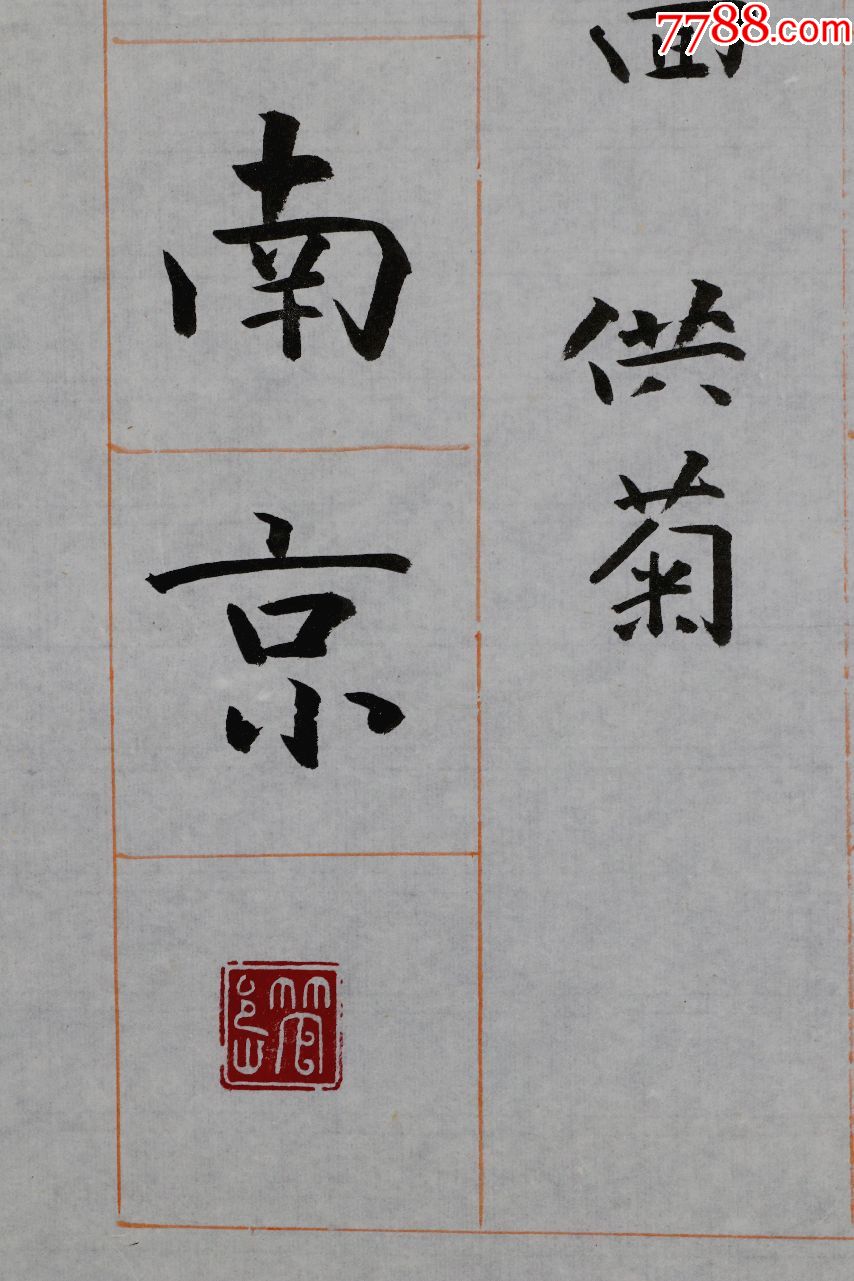 7788.com
供菊
南京